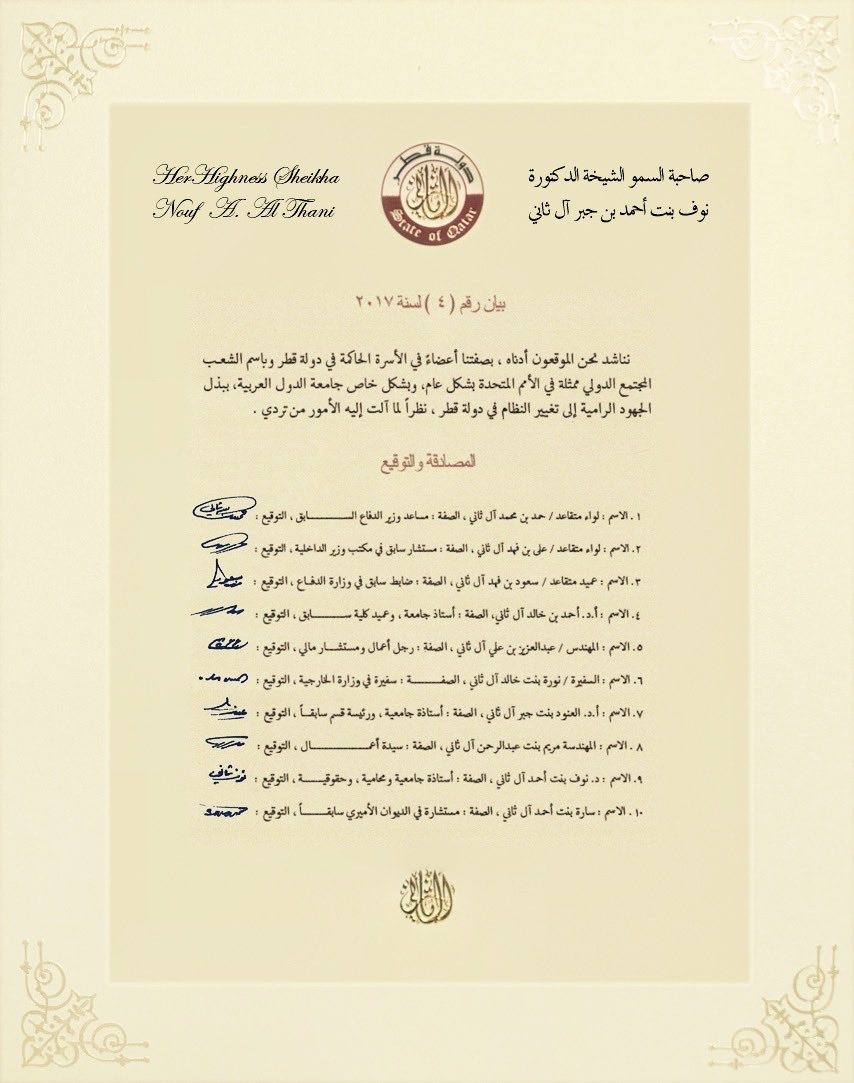 HerHighness Sheikha
Nouf A. Al Thani
دولة قطر
State of Qatar
صاحبة السمو الشيخة الدكتورة
نوف بنت أحمد بن جبر آل ثاني
بيان رقم ( ٤ ) لسنة ٢٠١٧
نناشد نحن الموقعون أدناه ، بصفتنا أعضاءً في الأسرة الحاكمة في دولة قطر وباسم الشعب
المجتمع الدولي ممثلة في الأمم المتحدة بشكل عام، وبشكل خاص جامعة الدول العربية، ببذل
الجهود الرامية إلى تغيير النظام في دولة قطر ، نظراً لما آلت إليه الأمور من تردي .
المصادقة والتوقيع
١. الاسم : لواء متقاعد / حمد بن محمد آل ثاني ، الصفة : مساعد وزير الدفاع الســـــابق ، التوقيع :
٢. الاسم : لواء متقاعد / على بن فهد آل ثاني ، الصفة : مستشار سابق في مكتب وزير الداخلية ، التوقيع :
٣. الاسم : عميد متقاعد / سعود بن فهد آل ثاني ، الصفة : ضابط سابق في وزارة الدفـاع ، التوقيع :
٤. الاسم : أ.د. أحمد بن خالد آل ثاني، الصفة : أستاذ جامعة ، وعميد كلية ســـــابق ، التوقيع :
٥. الاسم : المهندس / عبدالعزيز بن علي آل ثاني ، الصفة : رجل أعمال ومستشـــار مالي ، التوقيع :
٦. الاسم : السفيرة / نورة بنت خالد آل ثاني ، الصفـــــة : سفيرة في وزارة الخارجية ، التوقيع :
٧. الاسم : أ.د. العنود بنت جبر آل ثاني ، الصفة : أستاذة جامعية ، ورئيسة قسم سابقــاً ، التوقيع :
٨. الاسم : المهندسة مريم بنت عبدالرحمن آل ثاني ، الصفة : سيدة أعمـــــــال ، التوقيع :
٩. الاسم : د. نوف بنت أحمد آل ثاني ، الصفة : أستاذة جامعية ومحامية ، وحقوقيـــــة ، التوقيع :
١٠. الاسم : سارة بنت أحمد آل ثاني ، الصفة : مستشارة في الديوان الأميري سابقــــاً ، التوقيع :